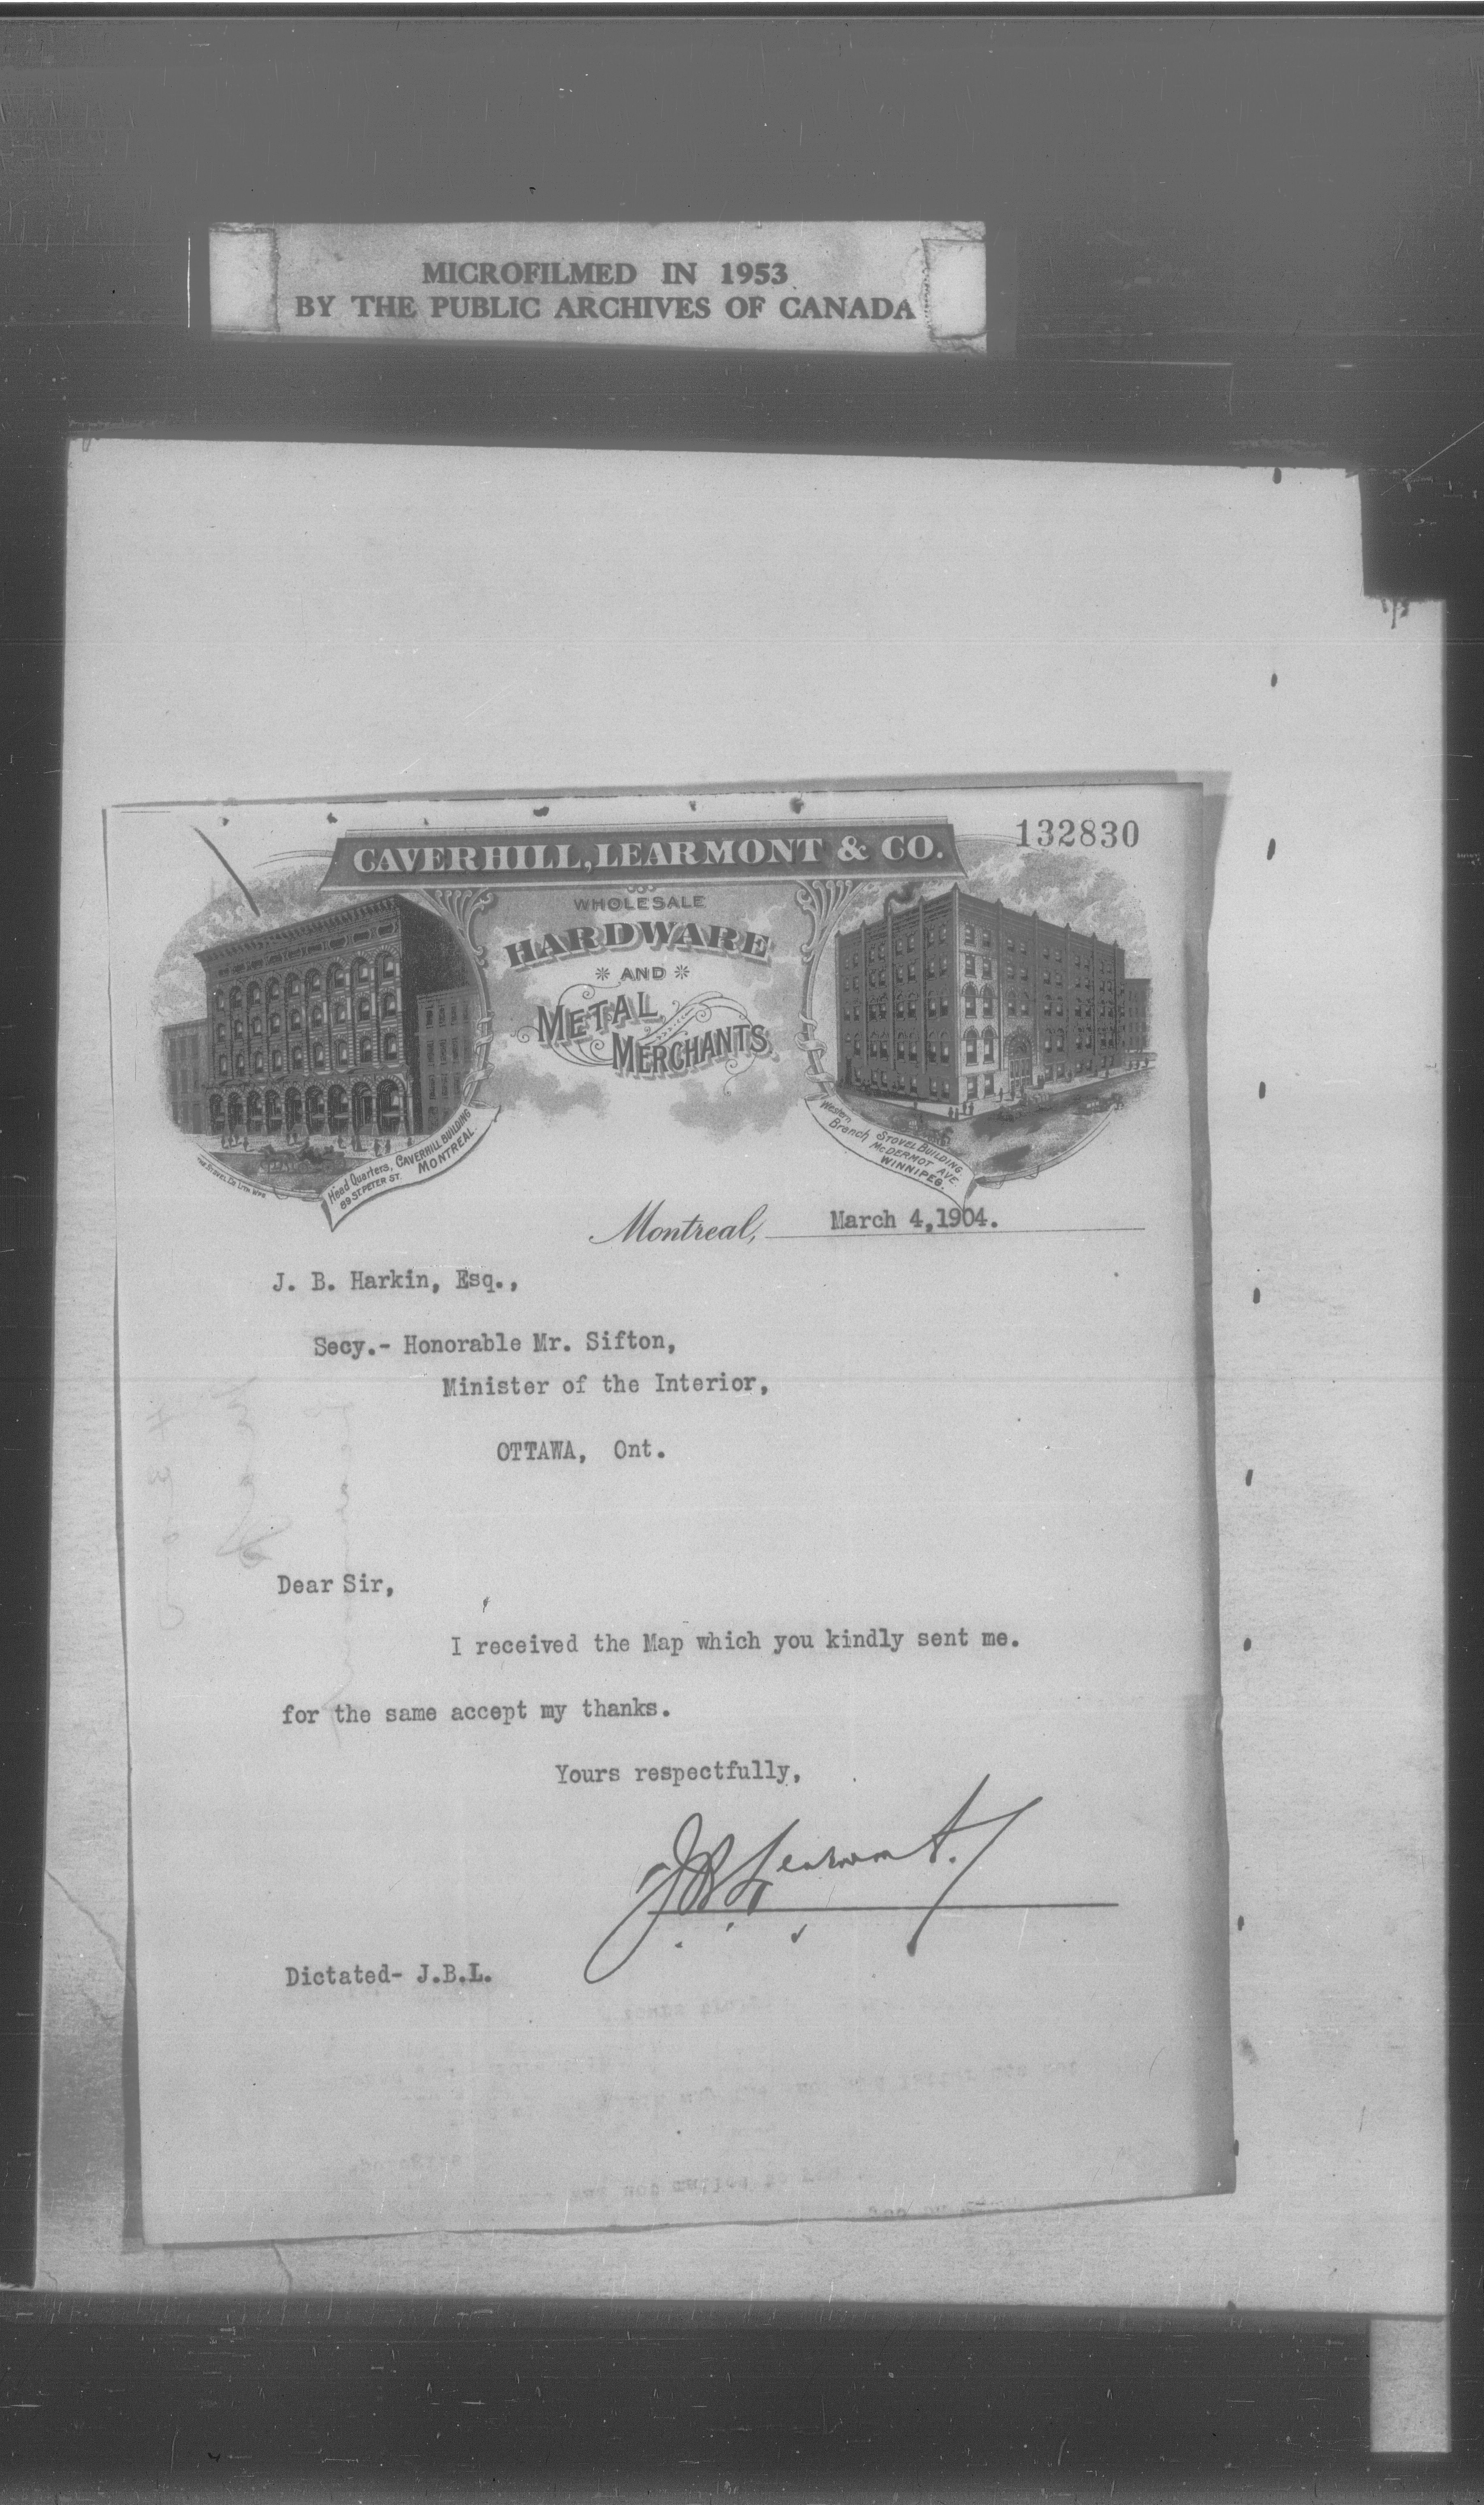 MICROFILMED IN 1953
BY THE PUBLIC ARCHIVES OF CANADA
132830
CAVERHILL, LEARMONT & CO.
WHOLESALE
HARDWARE
AND
METAL
MERCHANTS
Head Quarters, CAVERHILL BUILDING
89 ST. PETER ST. MONTREAL.
Western
Branch STOVEL BUILDING,
McDERMOT AVE.
WINNIPEG.
Montreal, March 4,1904.
J. B. Harkin, Esq.,
Secy.- Honorable Mr. Sifton,
Minister of the Interior,
OTTAWA, Ont.
Dear Sir,
I received the Map which you kindly sent me.
for the same accept my thanks.
Yours respectfully,
JB Learmont.
Dictated- J.B.L.